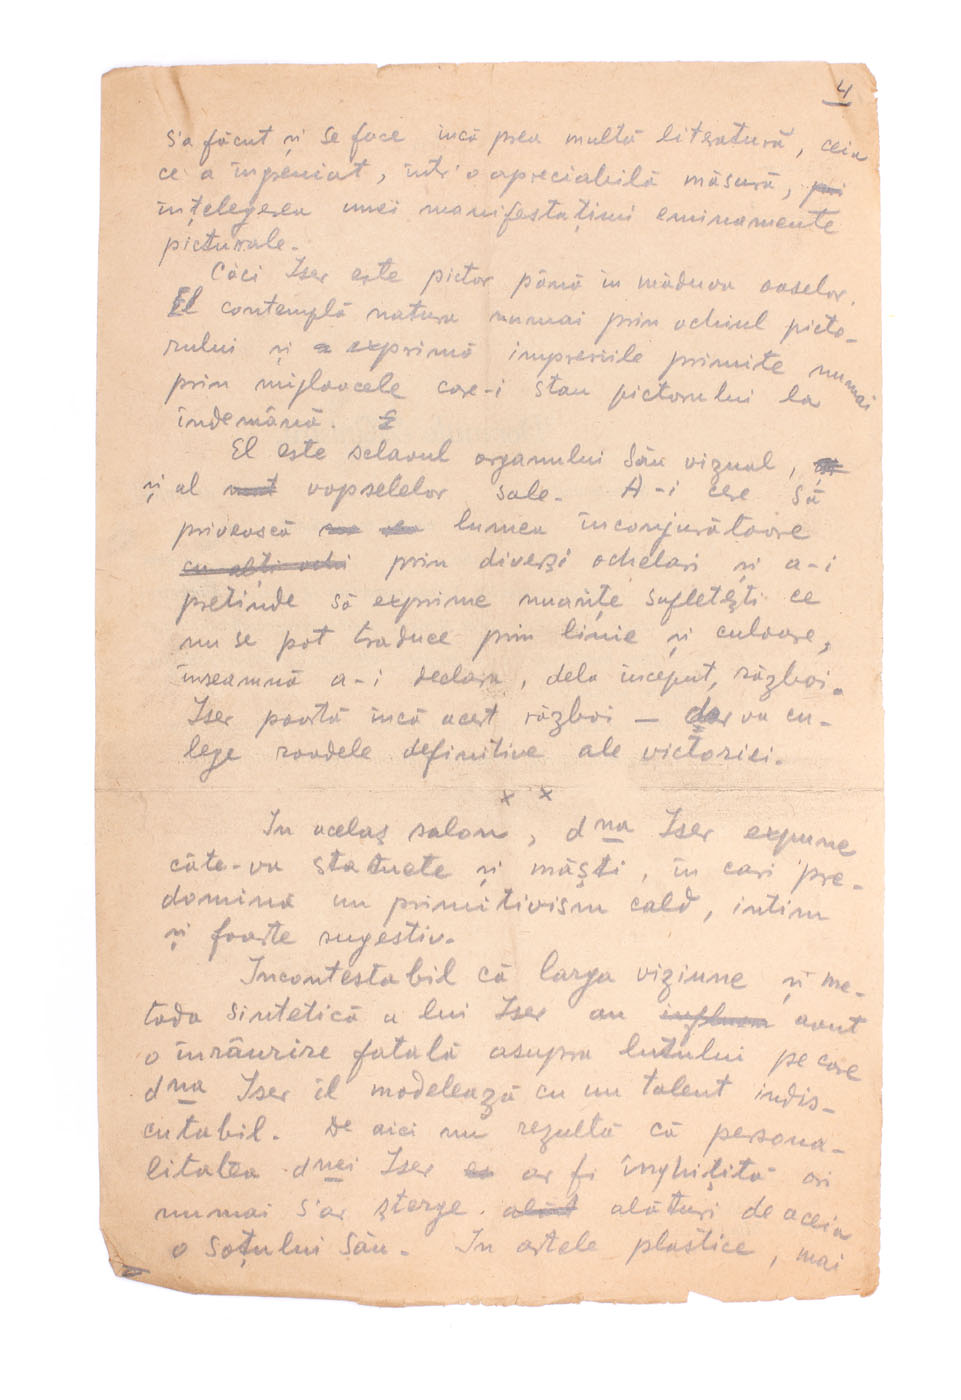 4
s'a făcut și se face încă prea multă literatură, ceia
ce a ingreuiat, într'o apreciabilă măsură,
înțelegerea unei manifestațiuni eminamente
picturale.
Căci Iser este pictor până în măduva oaselor.
El contemplă natura numai prin ochiul picto-
rului și exprimă impresiile primite numai
prin mijloacele care-i stau pictorului la
îndemână.
El este sclavul organului său vizual,
și al vopselelor sale. A-i cere să
privească lumea înconjurătoare
cu alți ochi prin diverși ochelari și a-i
pretinde să exprime nuanțe sufletești ce
nu se pot traduce prin linie și culoare,
înseamnă a-i declara, dela început, război.
Iser poartă încă acest război — dar va cu-
lege roadele definitive ale victoriei.
x x
In acelaș salon, dna Iser expune
câte-va statuete și măști, în cari pre-
domină un primitivism cald, intim
și foarte sugestiv.
Incontestabil că larga viziune și me-
toda sintetică a lui Iser au avut
o înrâurire fatală asupra lutului pe care
dna Iser îl modelează cu un talent indis-
cutabil. De aici nu rezultă că persona-
litatea dnei Iser ar fi înghițită ori
numai s'ar șterge alături de aceia
a soțului său. In artele plastice, mai